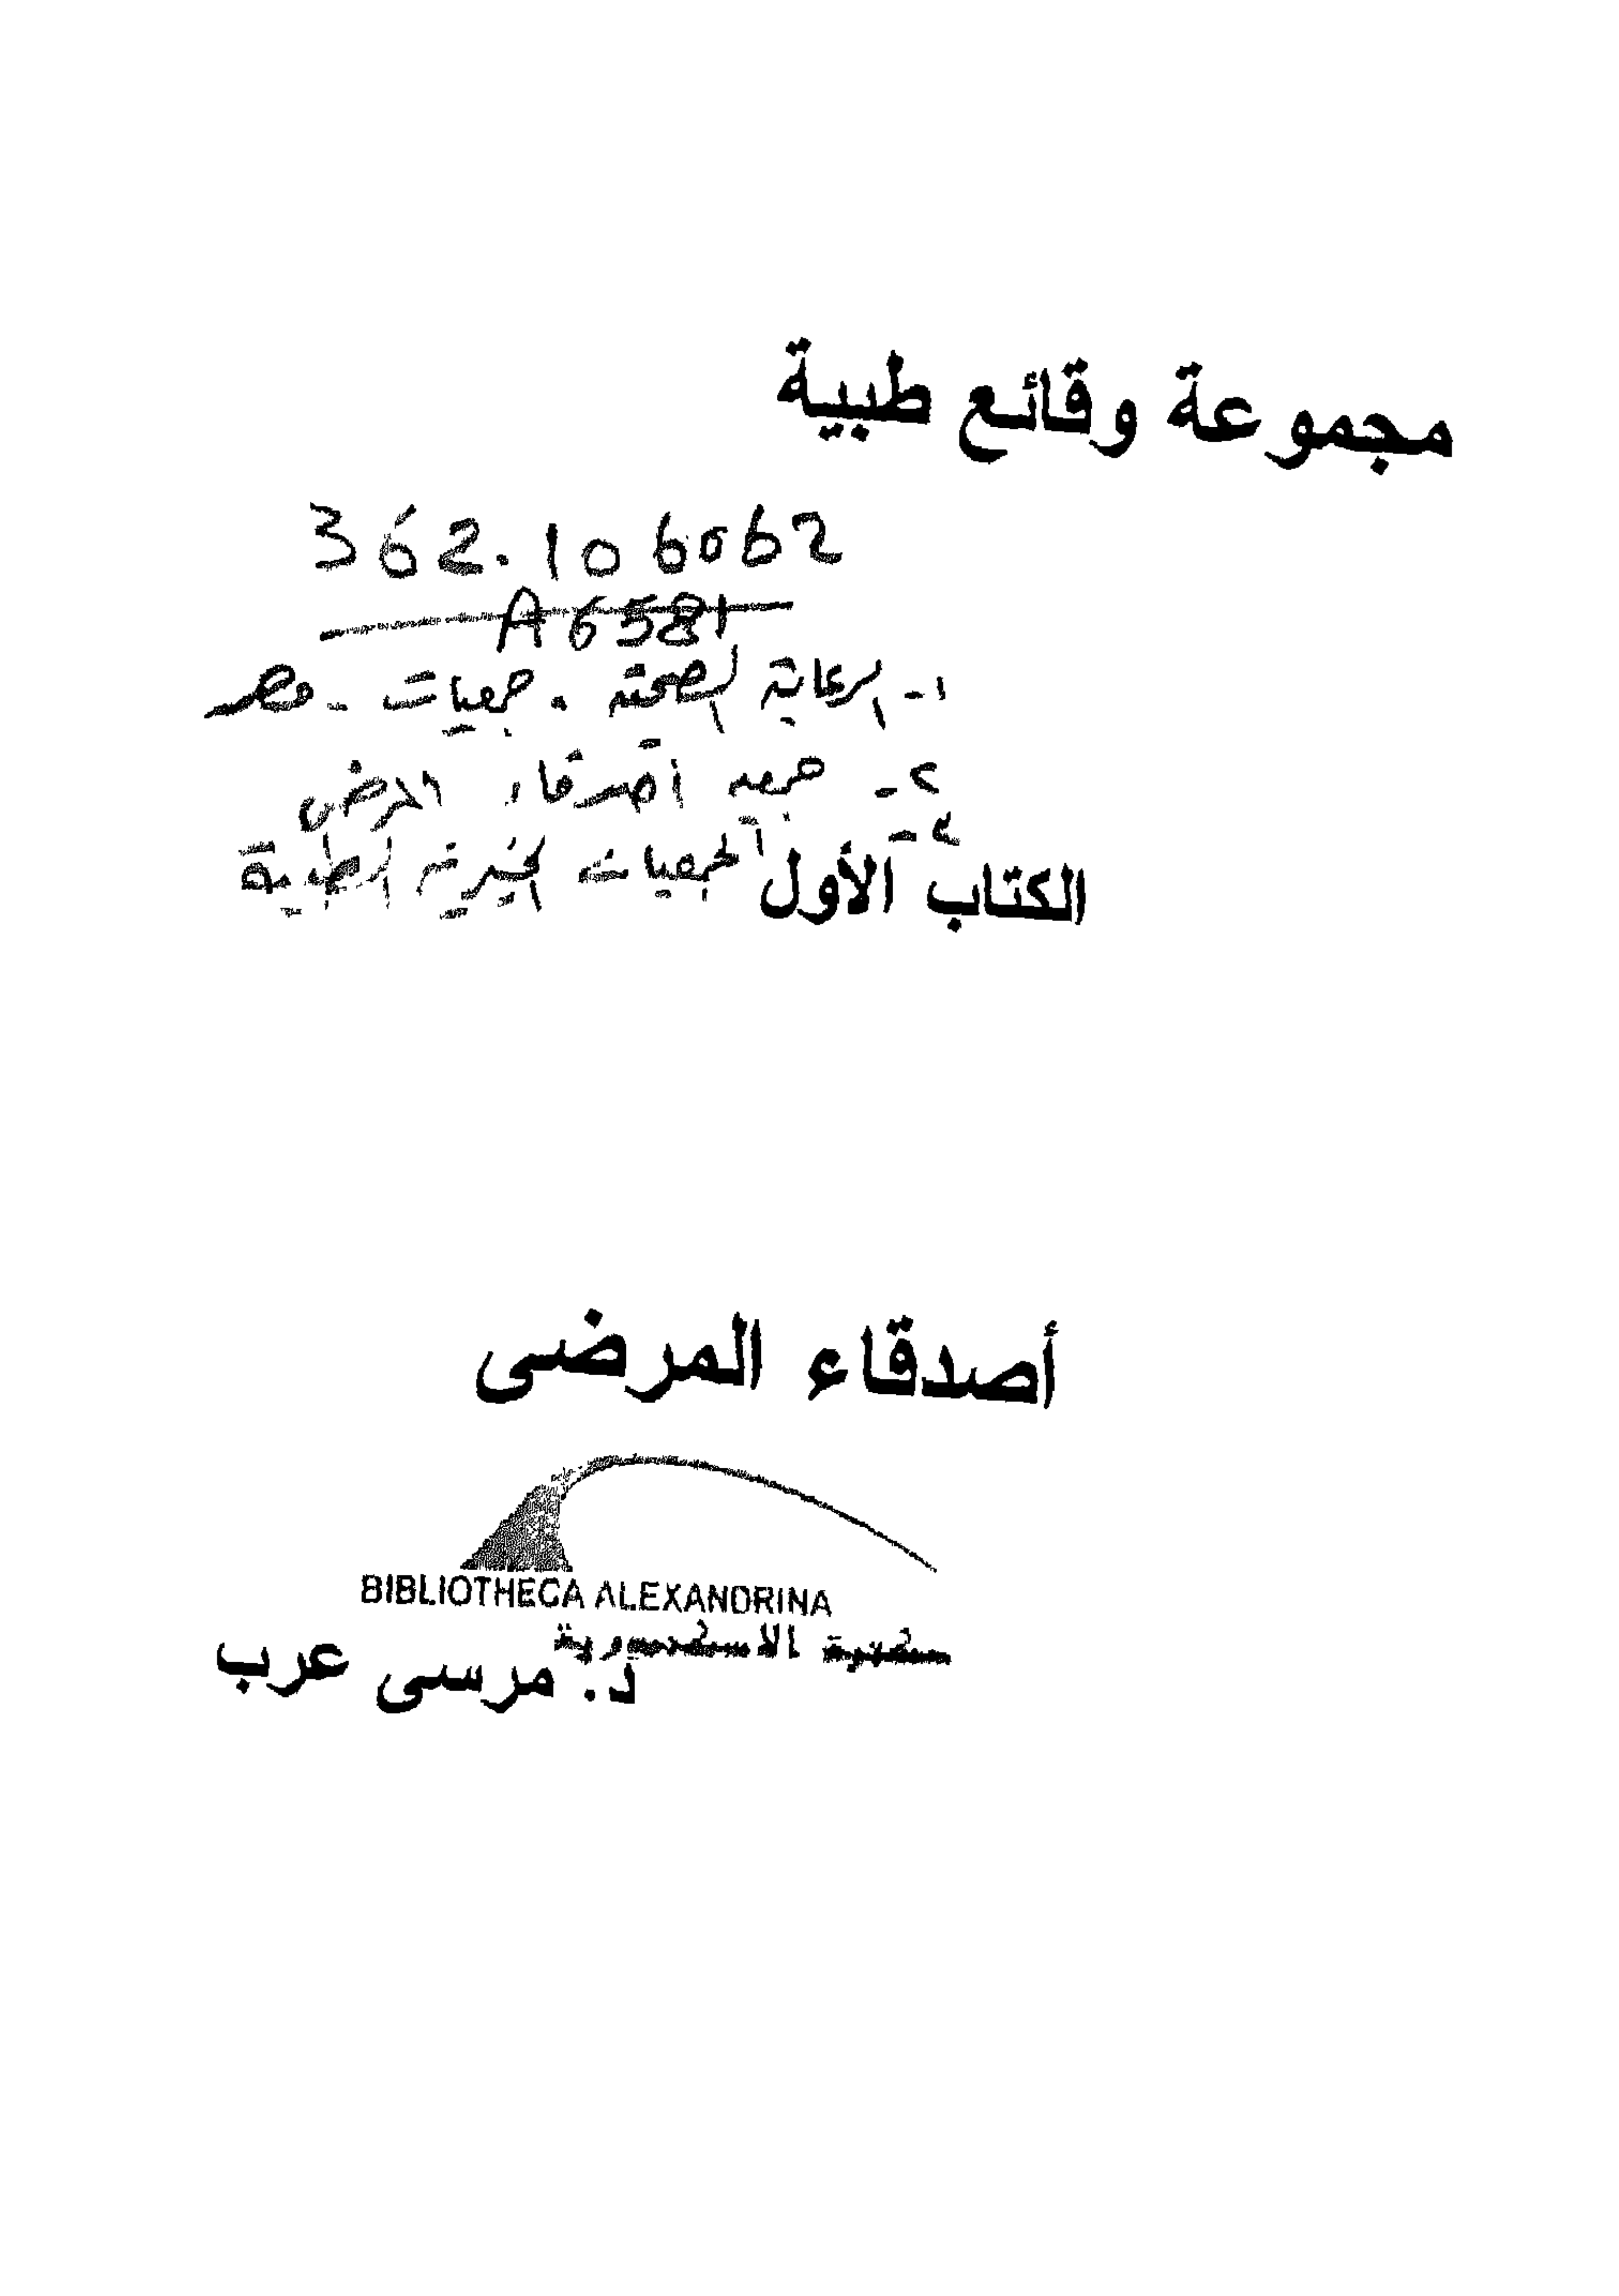 مجموعة وقائع طبية
362.106062
A6581
١- الرعاية الصحية . جمعيات - مصر
٢- جمعية أصدقاء المرضى
٣- الجمعيات الخيرية الطبية
الكتاب الأول
أصدقاء المرضى
BIBLIOTHECA ALEXANDRINA
مكتبة الاسكندرية
د. مرسى عرب